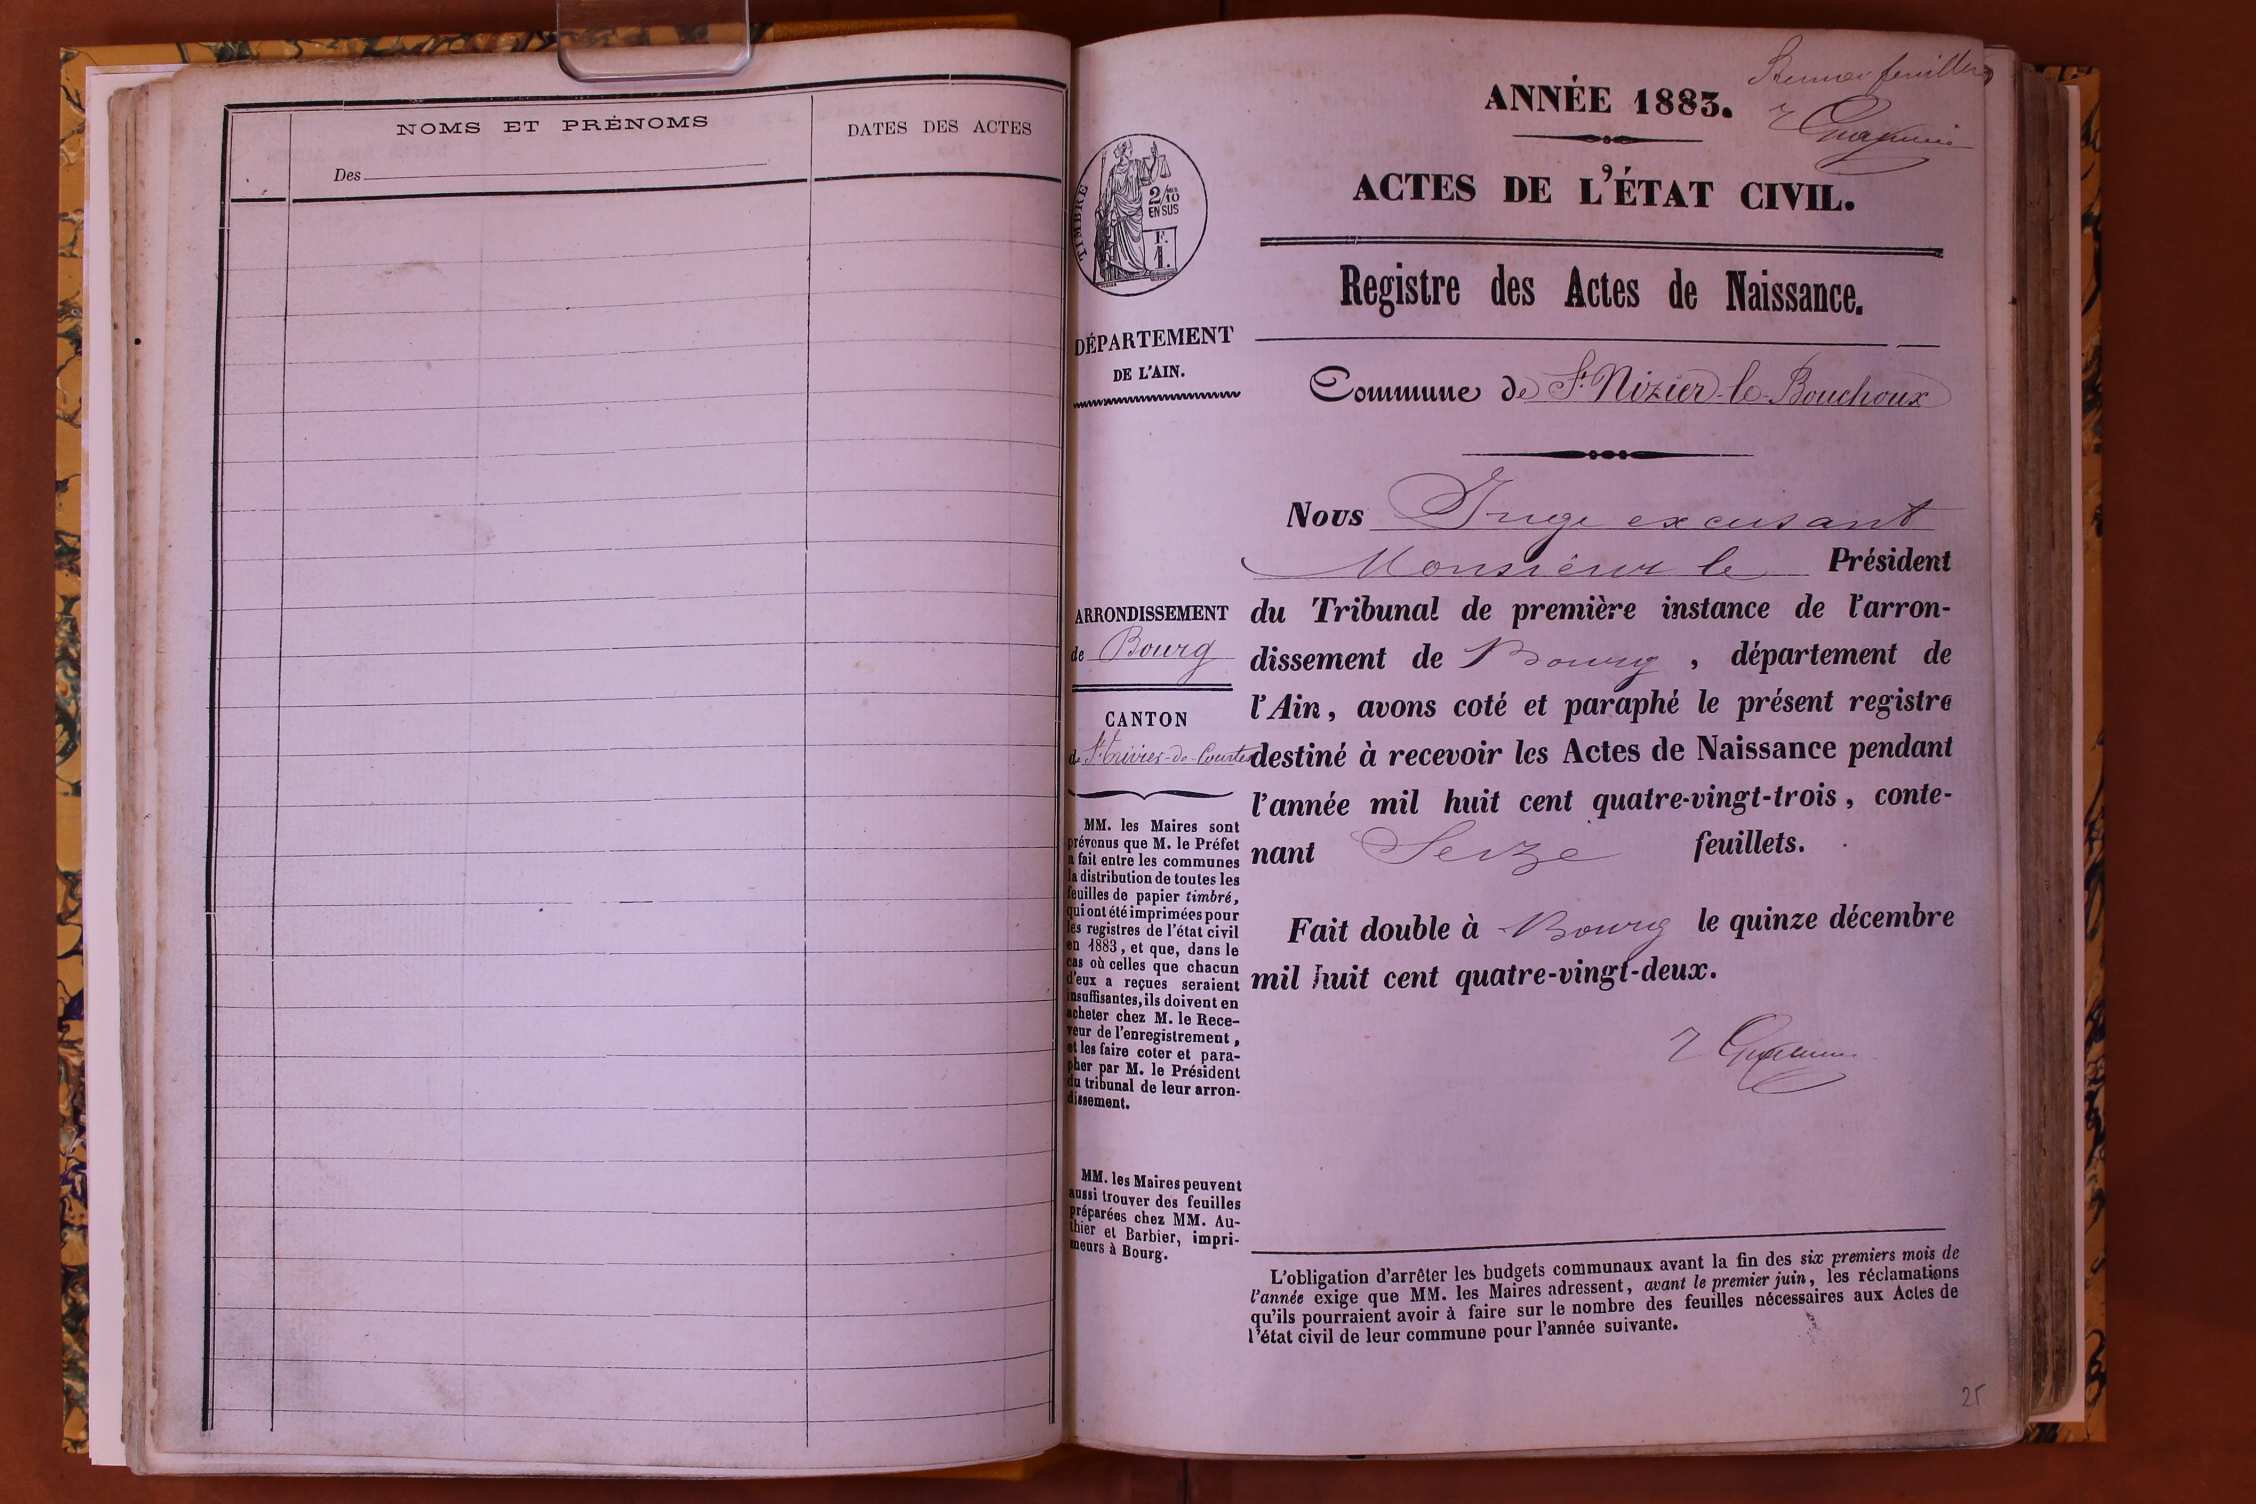 NOMS ET PRÉNOMS
DATES DES ACTES
Des
feuillet
ANNÉE 1883.
ACTES DE L'ÉTAT CIVIL.
TIMBRE
2/10
EN SUS
F.
1.
Registre des Actes de Naissance.
DÉPARTEMENT
DE L'AIN.
Commune de St. Nizier-le-Bouchoux
Nous Juge excusant
Monsieur le Président
du Tribunal de première instance de l'arron-
dissement de Bourg, département de
l'Ain, avons coté et paraphé le présent registre
destiné à recevoir les Actes de Naissance pendant
l'année mil huit cent quatre-vingt-trois, conte-
nant Seize feuillets.
Fait double à Bourg le quinze décembre
mil huit cent quatre-vingt-deux.
ARRONDISSEMENT
de Bourg
CANTON
de St. Trivier-de-Courtes
MM. les Maires sont
prévenus que M. le Préfet
a fait entre les communes
la distribution de toutes les
feuilles de papier timbré,
qui ont été imprimées pour
les registres de l'état civil
en 1883, et que, dans le
cas où celles que chacun
d'eux a reçues seraient
insuffisantes, ils doivent en
acheter chez M. le Rece-
veur de l'enregistrement,
et les faire coter et para-
pher par M. le Président
du tribunal de leur arron-
dissement.
MM. les Maires peuvent
aussi trouver des feuilles
préparées chez MM. Au-
thier et Barbier, impri-
meurs à Bourg.
L'obligation d'arrêter les budgets communaux avant la fin des six premiers mois de
l'année exige que MM. les Maires adressent, avant le premier juin, les réclamations
qu'ils pourraient avoir à faire sur le nombre des feuilles nécessaires aux Actes de
l'état civil de leur commune pour l'année suivante.
25